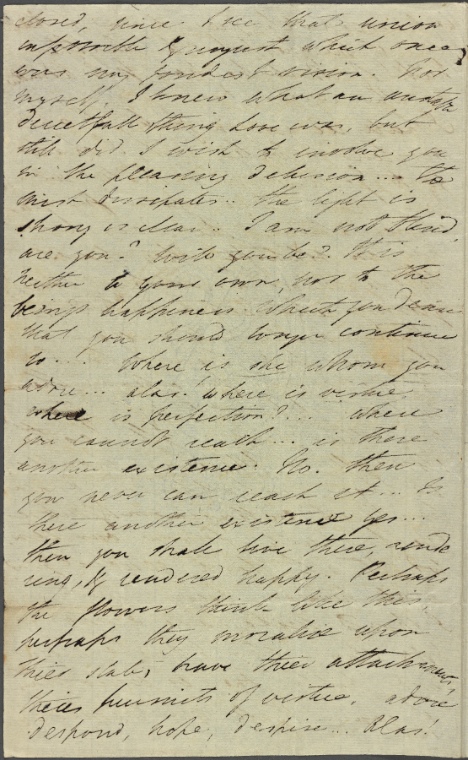 closed, since I see that union
impossible & unjust which once
was my fondest vision. For
myself, I knew what an
deceitfull thing Love was, but
still did I wish to involve you
in the pleasing delusion... the
mist dissipates.. the light is
strong & clear.. I am not blind,
are you? will you be? It is
neither to your own, nor to the
beings happiness whom you
that you should longer continue
so.... Where is she whom you
adore... alas! where is virtue,
where is perfection?... where
you cannot reach... is there
another existence. No. then
you never can reach it... Is
there another existence yes...
then you shall live there, rende
ring, & rendered happy. Perhaps
the flowers think like this,
perhaps they moralise upon
thier state, have thier attachments
thier pursuits of virtue, adore
despond, hope, despise... Alas!